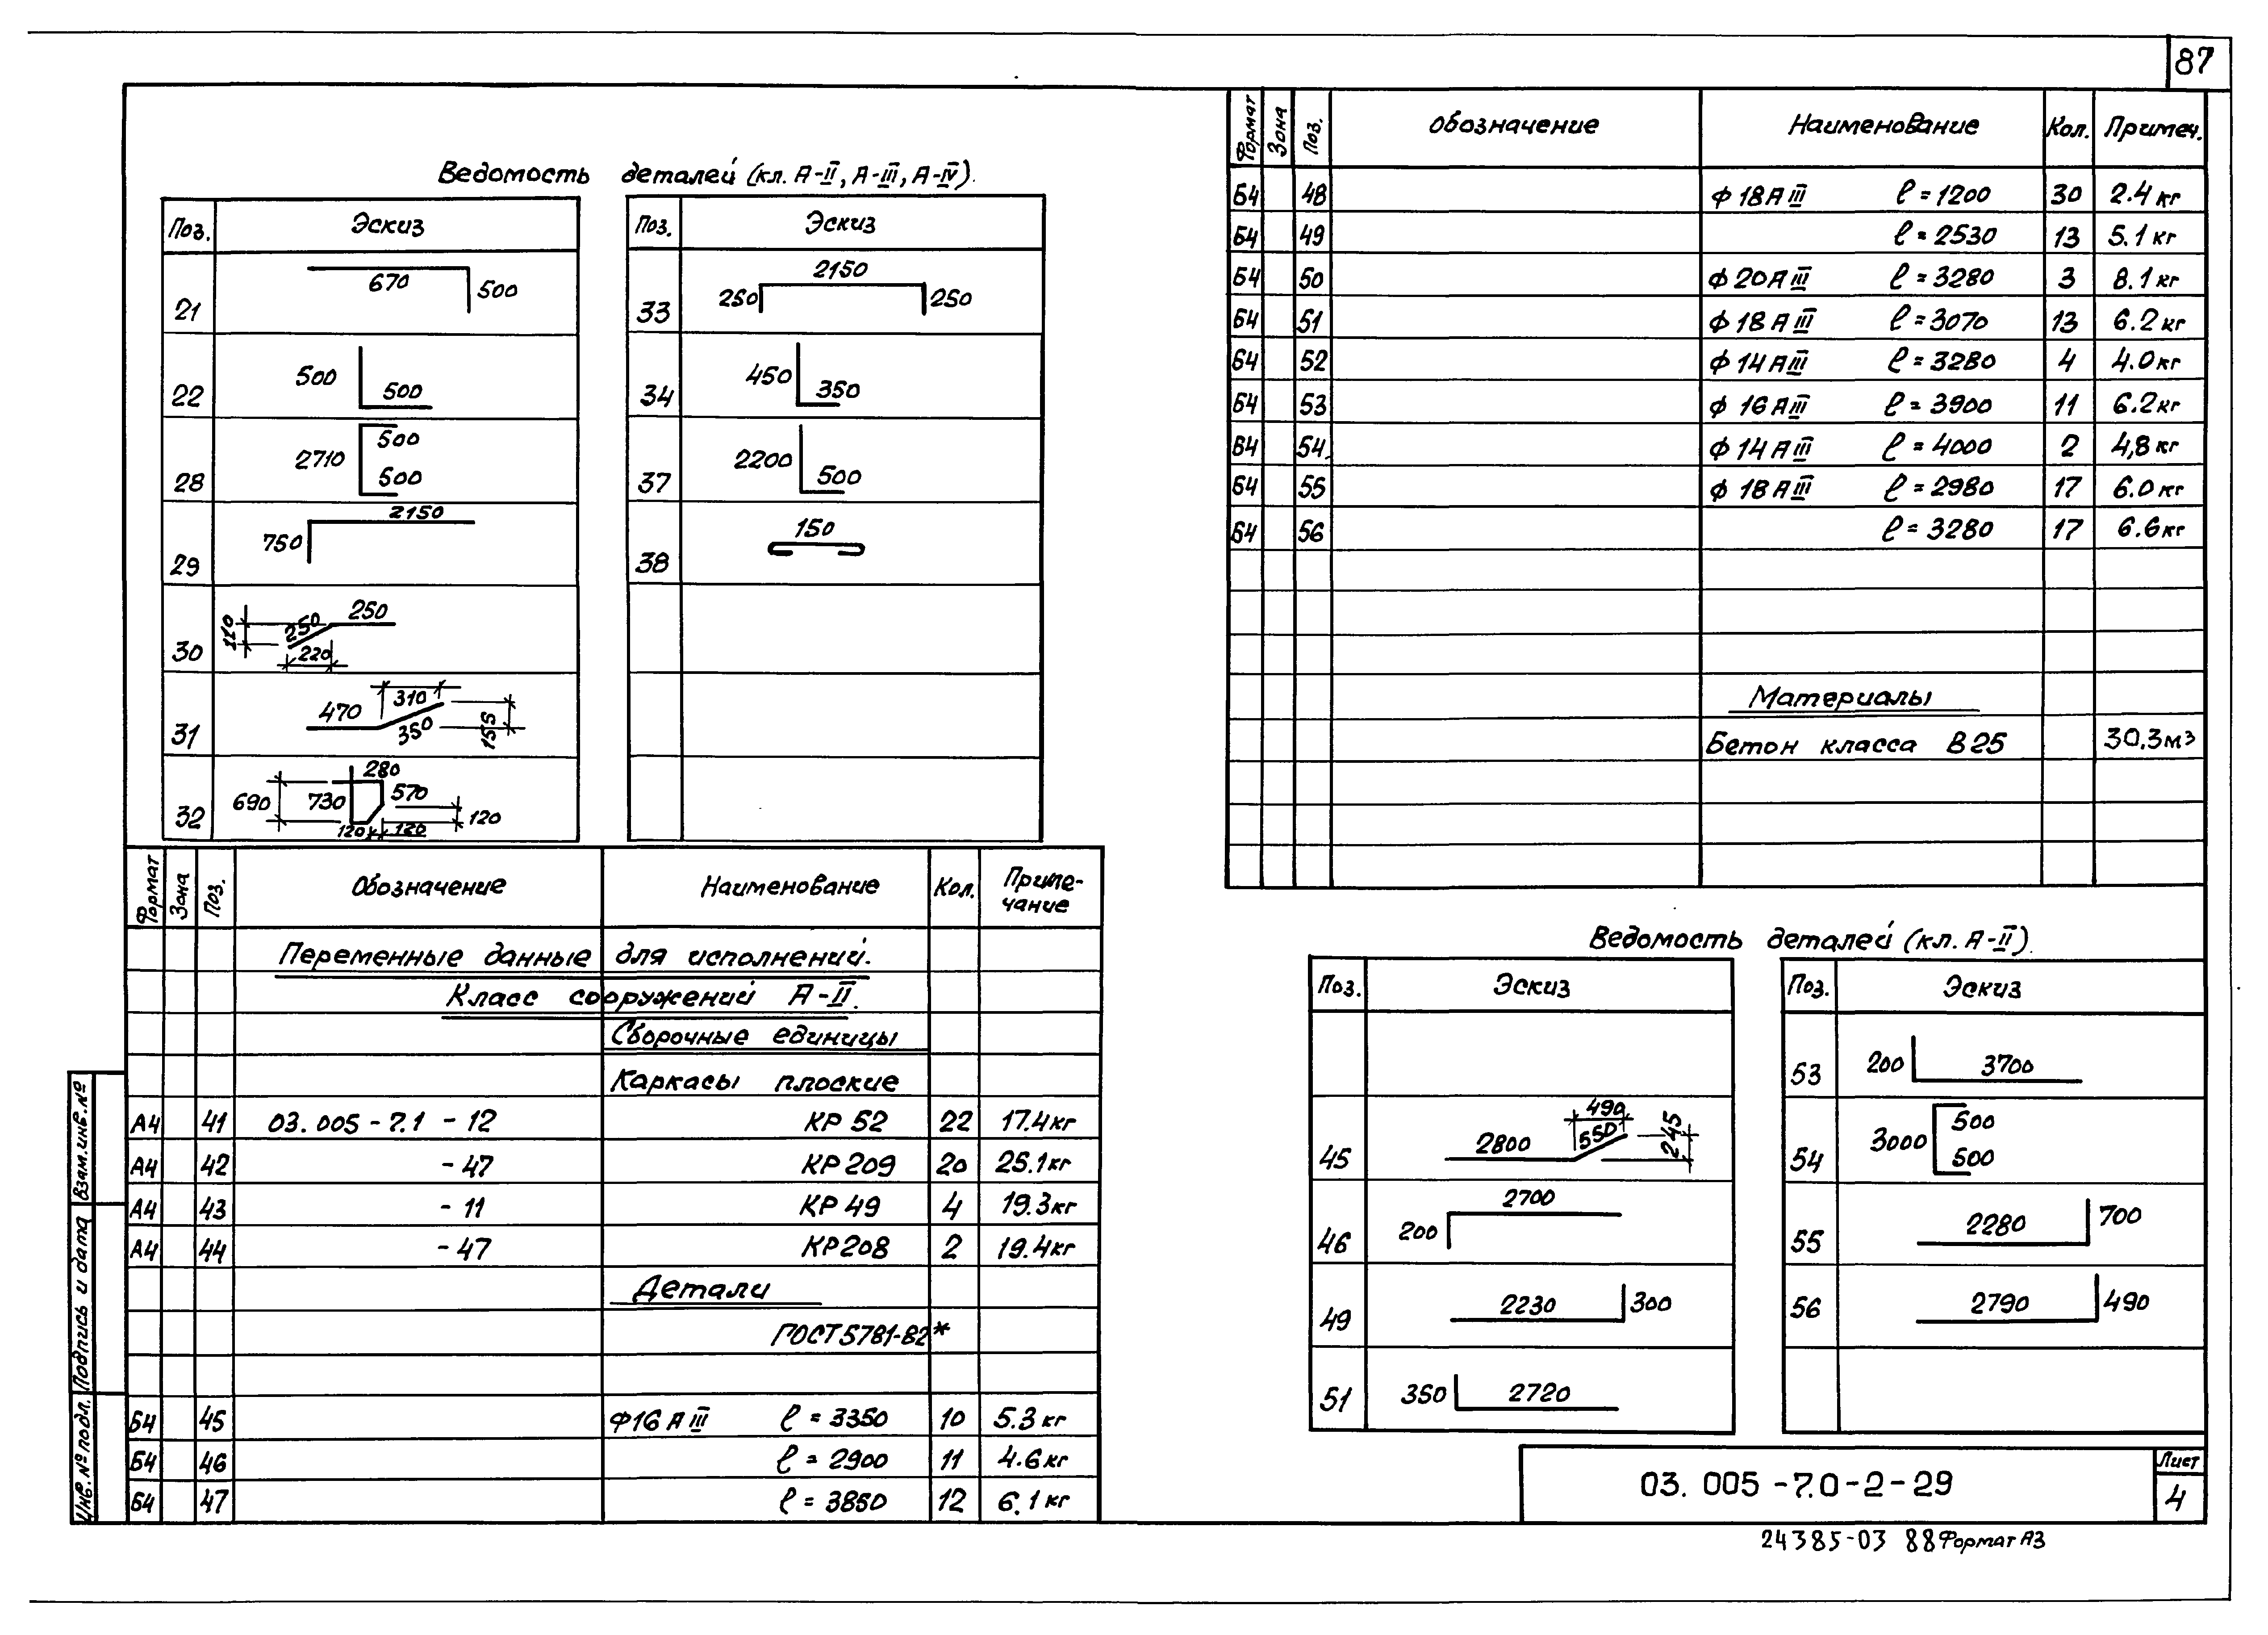 87
Ведомость деталей (кл. А-II, А-III, А-IV).
Поз. Эскиз
21 670 500
22 500 500
28 2710 500 500
29 750 2150
30 110 250 250 220
31 470 310 350 155
32 690 730 280 570 120 120 120
Поз. Эскиз
33 250 2150 250
34 450 350
37 2200 500
38 150
Формат Зона Поз. Обозначение Наименование Кол. Примеч.
Б4 48 Ф 18 А III ℓ = 1200 30 2.4 кг
Б4 49 ℓ = 2530 13 5.1 кг
Б4 50 Ф 20 А III ℓ = 3280 3 8.1 кг
Б4 51 Ф 18 А III ℓ = 3070 13 6.2 кг
Б4 52 Ф 14 А III ℓ = 3280 4 4.0 кг
Б4 53 Ф 16 А III ℓ = 3900 11 6.2 кг
Б4 54 Ф 14 А III ℓ = 4000 2 4,8 кг
Б4 55 Ф 18 А III ℓ = 2980 17 6.0 кг
Б4 56 ℓ = 3280 17 6.6 кг
Материалы
Бетон класса В 25 30.3 м³
Формат Зона Поз. Обозначение Наименование Кол. Приме-
чание
Переменные данные для исполнений.
Класс сооружений А-II.
Сборочные единицы
Каркасы плоские
А4 41 03.005-7.1 - 12 КР 52 22 17.4 кг
А4 42 - 47 КР 209 20 25.1 кг
А4 43 - 11 КР 49 4 19.3 кг
А4 44 - 47 КР 208 2 19.4 кг
Детали
ГОСТ 5781-82*
Б4 45 Ф 16 А III ℓ = 3350 10 5.3 кг
Б4 46 ℓ = 2900 11 4.6 кг
Б4 47 ℓ = 3850 12 6.1 кг
Ведомость деталей (кл. А-II).
Поз. Эскиз
45 2800 490 550 245
46 200 2700
49 2230 300
51 350 2720
Поз. Эскиз
53 200 3700
54 3000 500 500
55 2280 700
56 2790 490
Взам. инв. №
Подпись и дата
Инв. № подл.
03.005-7.0-2-29
Лист
4
24385-03 88 Формат А3